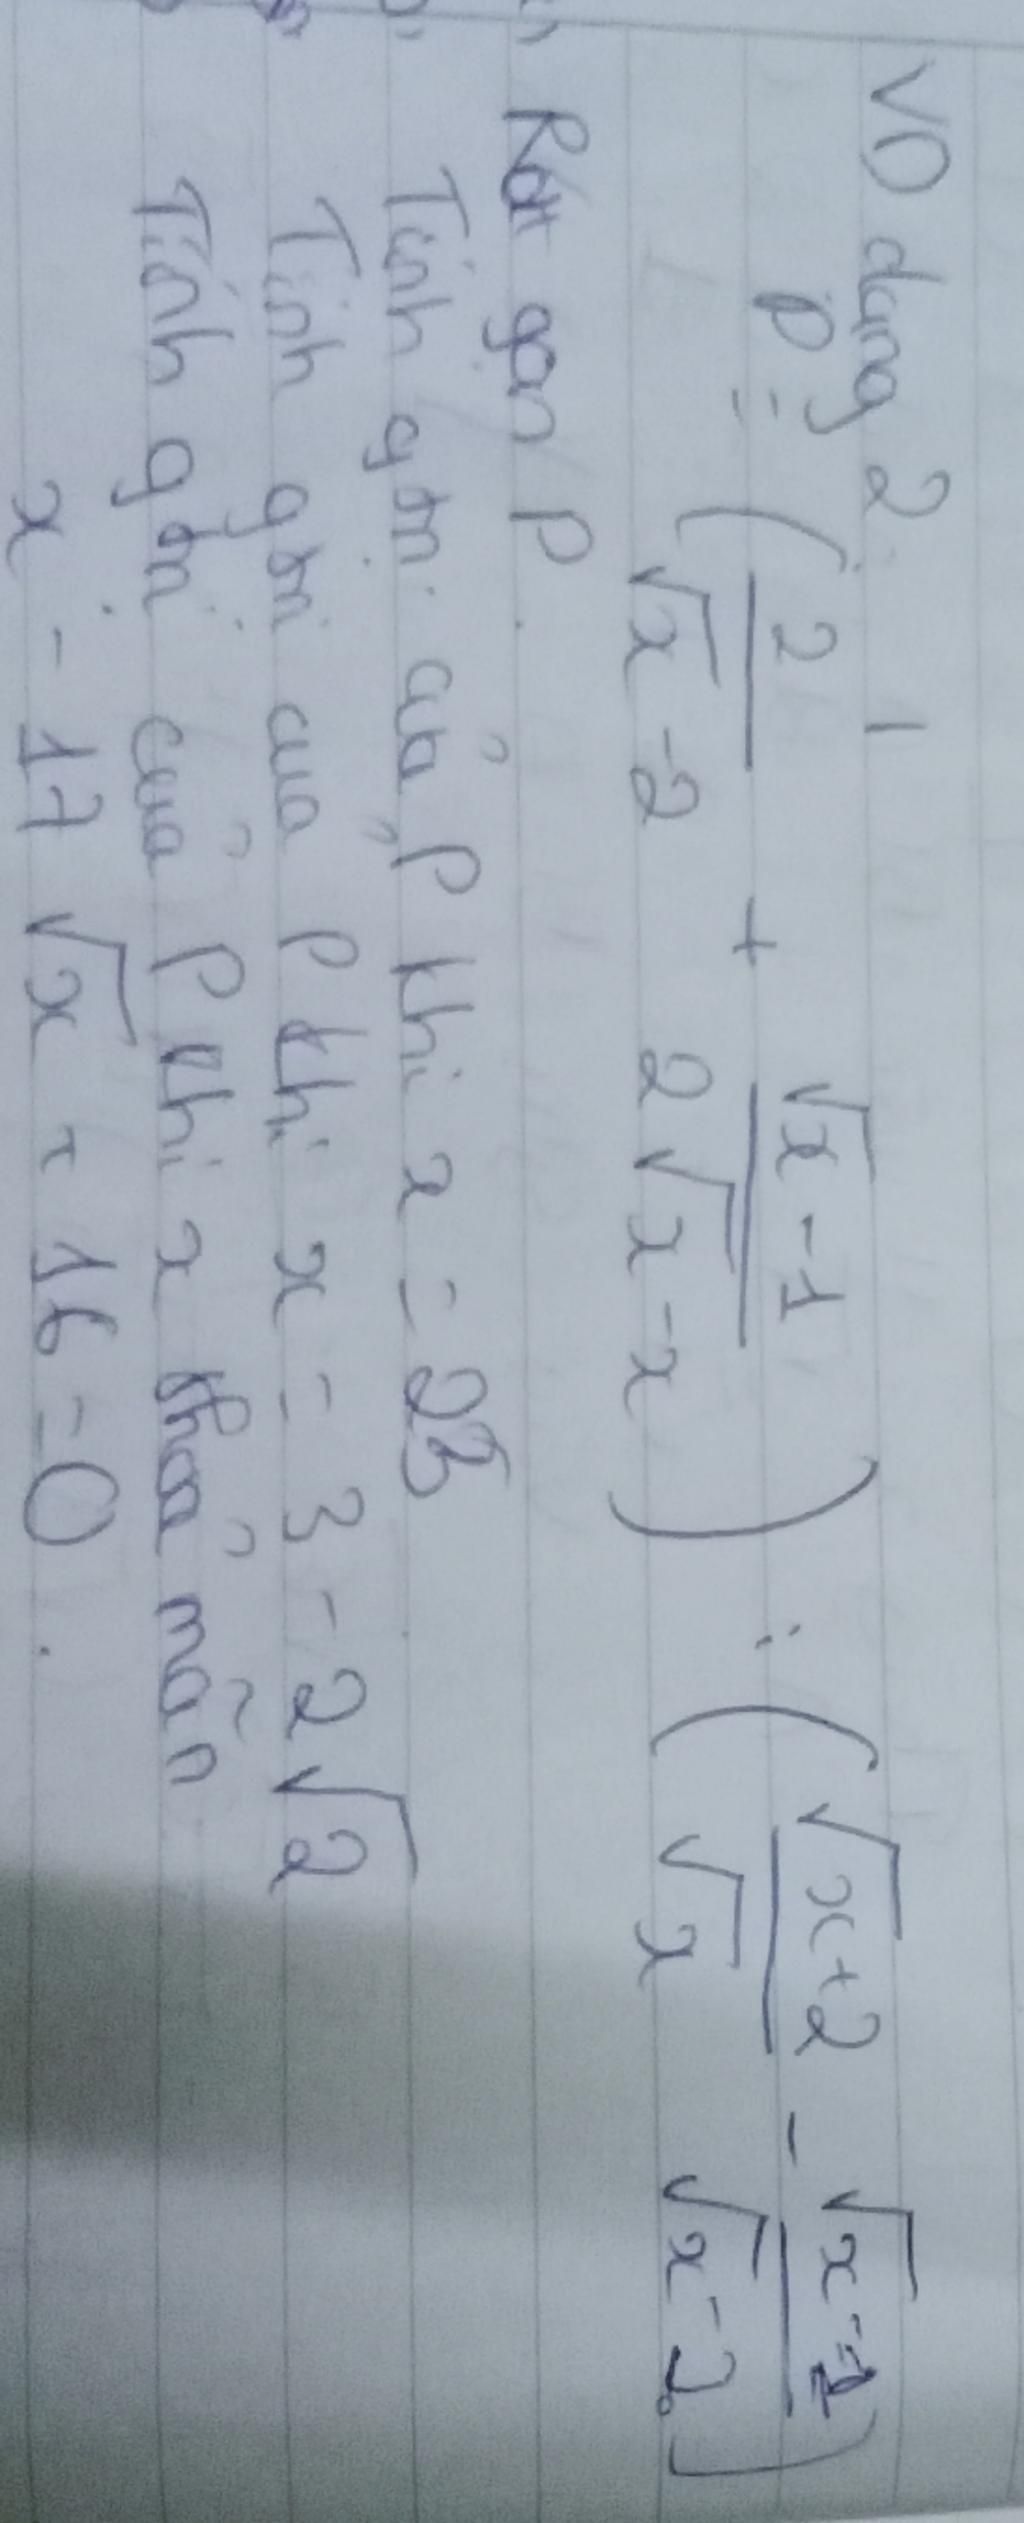 VD dạng 2 1
P = ( 2/(√x - 2) + (√x - 1)/(2√x - x) ) : ( (√x+2)/√x - (√x - 1)/(√x - 2) )
Rút gọn P.
Tính gtrị của P khi x = 25
Tính gtrị của P khi x = 3 - 2√2
Tính gtrị của P khi x thoả mãn
x - 17√x + 16 = 0.